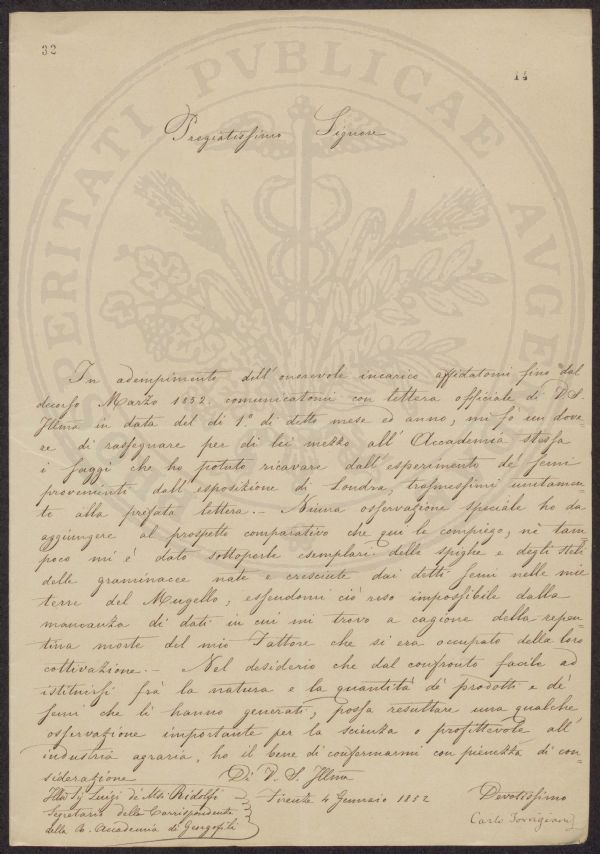 32
14
PROSPERITATI PVBLICAE AVGENDAE
Pregiatissimo Signore
In adempimento dell'onorevole incarico affidatomi fino dal
decorso Marzo 1852. comunicatomi con lettera officiale di V.S.
Illma in data del dì 1º di detto mese ed anno, mi fò un dove-
re di rassegnare per di lei mezzo all'Accademia stessa
i saggi che ho potuto ricavare dall'esperimento de' semi
provenienti dall'esposizione di Londra, trasmessimi unitamen-
te alla prefata lettera. - Niuna osservazione speciale ho da
aggiungere al prospetto comparativo che qui le compiego, nè tam
poco mi è dato sottoporle esemplari delle spighe e degli steli
delle graminacee nate e cresciute dai detti semi nelle mie
terre del Mugello; essendomi ciò reso impossibile dalla
mancanza di dati in cui mi trovo a cagione della repen-
tina morte del mio Fattore che si era occupato della loro
coltivazione. - Nel desiderio che dal confronto facile ad
istituirsi frà la natura e la quantità de' prodotti e de'
semi che li hanno generati, possa resultare una qualche
osservazione importante per la scienza o profittevole all'
industria agraria, ho il bene di confermarmi con pienezza di con-
siderazione
Di V. S. Illma
Illmo Sig Luigi de' Msi Ridolfi
Segretario delle Corrispondenze
della R. Accademia di Georgofili
Firenze 4 Gennaio 1852
Devotissimo
Carlo